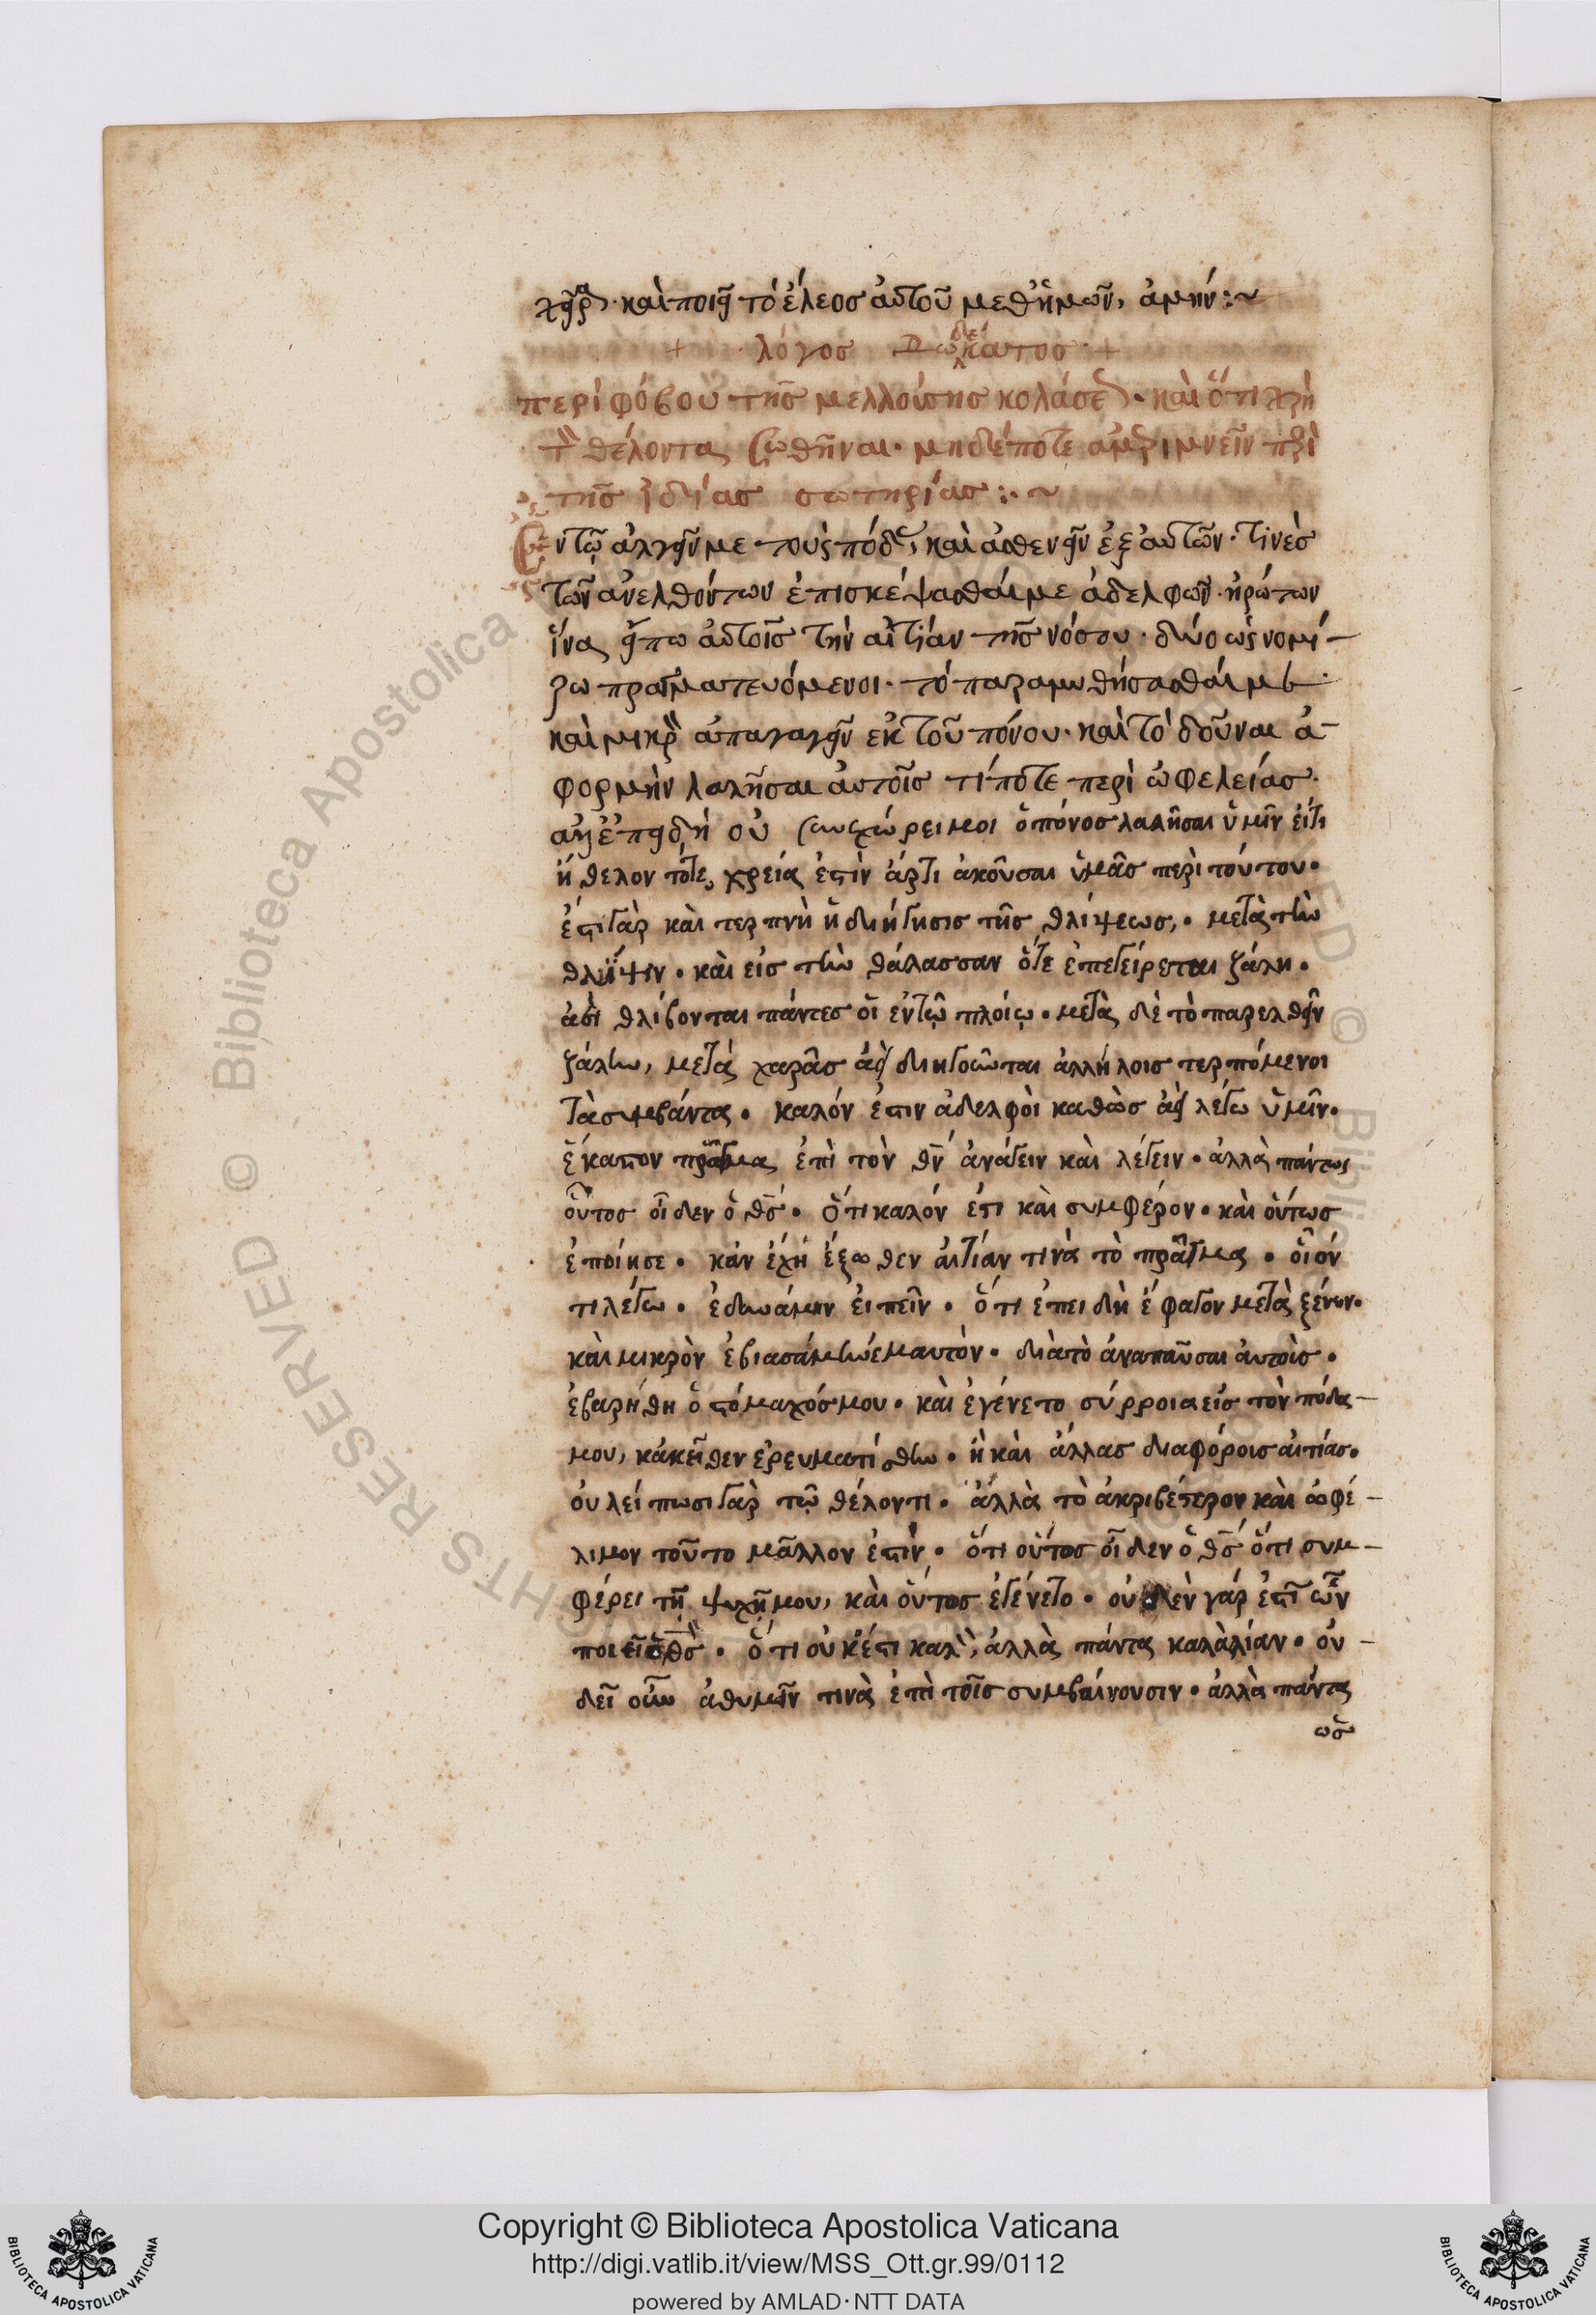 χεῖρα. καὶ ποιεῖ τὸ ἔλεος αὐτοῦ μεθ' ἡμῶν, ἀμήν :~
+ λόγος δωδέκατος +
περὶ φόβου τῆς μελλούσης κολάσεως. καὶ ὅτι χρὴ
τὸν θέλοντα σωθῆναι. μηδέποτε ἀμεριμνεῖν περὶ
τῆς ἰδίας σωτηρίας :. ~
Ἐν τῷ ἀλγεῖν με τοὺς πόδας, καὶ ἀσθενεῖν ἐξ αὐτῶν. τινὲς
τῶν ἀνελθόντων ἐπισκέψασθαί με ἀδελφῶν. ἠρώτων
ἵνα εἴπω αὐτοῖς τὴν αἰτίαν τῆς νόσου. δύο ὡς νομί-
ζω πραγματευόμενοι. τὸ παραμυθήσασθαί με
καὶ μικρὸν ἀπαγαγεῖν ἐκ τοῦ πόνου. καὶ τὸ δοῦναι ἀ-
φορμὴν λαλῆσαι αὐτοῖς τίποτε περὶ ὠφελείας.
ἀλλ' ἐπειδὴ οὐ συνεχώρει μοι ὁ πόνος λαλῆσαι ὑμῖν εἴτι
ἤθελον τότε, χρεία ἐστὶν ἄρτι ἀκοῦσαι ὑμᾶς περὶ τούτου.
ἔστι γὰρ καὶ τερπνὴ ἡ διήγησις τῆς θλίψεως,. μετὰ τὴν
θλίψιν. καὶ εἰς τὴν θάλασσαν ὅτε ἐπεγείρεται ζάλη.
ἀεὶ θλίβονται πάντες οἱ ἐν τῷ πλοίῳ. μετὰ δὲ τὸ παρελθεῖν
ζάλην, μετὰ χαρᾶς ἀεὶ διηγοῦνται ἀλλήλοις τερπόμενοι
τὰ συμβάντα. καλόν ἐστιν ἀδελφοὶ καθὼς ἀεὶ λέγω ὑμῖν.
ἕκαστον πρᾶγμα ἐπὶ τὸν θν ἀνάγειν καὶ λέγειν. ἀλλὰ πάντως
οὗτος οἶδεν ὁ θς. ὅτι καλόν ἐστι καὶ συμφέρον. καὶ οὕτως
ἐποίησε. κἀν ἐχῆ ἔξωθεν αἰτίαν τινὰ τὸ πρᾶγμα. οἷόν
τι λέγω. ἐδυνάμην εἰπεῖν. ὅτι ἐπειδὴ ἔφαγον μετὰ ξένων.
καὶ μικρὸν ἐβιασάμην ἐμαυτὸν. διὰ τὸ ἀναπαῦσαι αὐτοὺς.
ἐβαρήθη ὁ στόμαχός μου. καὶ ἐγένετο σύρροια εἰς τὸν πόδα
μου, κἀκεῖθεν ἐρευματίσθην. ἢ καὶ ἄλλας διαφόροις αἰτίας.
οὐ λείπωσι γὰρ τῷ θέλοντι. ἀλλὰ τὸ ἀκριβέστερον καὶ ὠφέ-
λιμον τοῦτο μᾶλλον ἐστὶν. ὅτι οὗτος οἶδεν ὁ θς ὅτι συμ-
φέρει τῇ ψυχῇ μου, καὶ οὕτος ἐγένετο. οὐδὲν γάρ ἐστὶ ὧν
ποιεῖ ὁ θς. ὅτι οὐκ ἔστι καλὸν, ἀλλὰ πάντα καλὰ λίαν. οὐ
δεῖ οὖν ἀθυμεῖν τινὰ ἐπὶ τοῖς συμβαίνουσιν. ἀλλὰ πάντα
ὡς
Copyright © Biblioteca Apostolica Vaticana
http://digi.vatlib.it/view/MSS_Ott.gr.99/0112
powered by AMLAD·NTT DATA